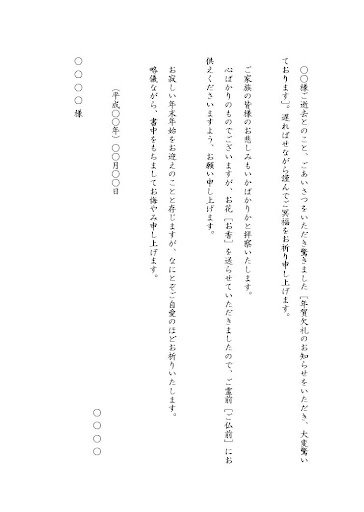 ○○様ご逝去とのこと、ごあいさつをいただき驚きました［年賀欠礼のお知らせをいただき、大変驚い
ております］。遅ればせながら謹んでご冥福をお祈り申し上げます。
ご家族の皆様のお悲しみもいかばかりかと拝察いたします。
心ばかりのものでございますが、お花［お香］を送らせていただきましたので、ご霊前［ご仏前］にお
供えくださいますよう、お願い申し上げます。
お寂しい年末年始をお迎えのことと存じますが、なにとぞご自愛のほどお祈りいたします。
略儀ながら、書中をもちましてお悔やみ申し上げます。
（平成○○年）○○月○○日
○○○○
○○○○様